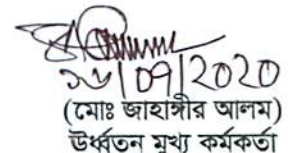 ১৬/09/2020
(মোঃ জাহাঙ্গীর আলম)
উর্ধ্বতন মুখ্য কর্মকর্তা